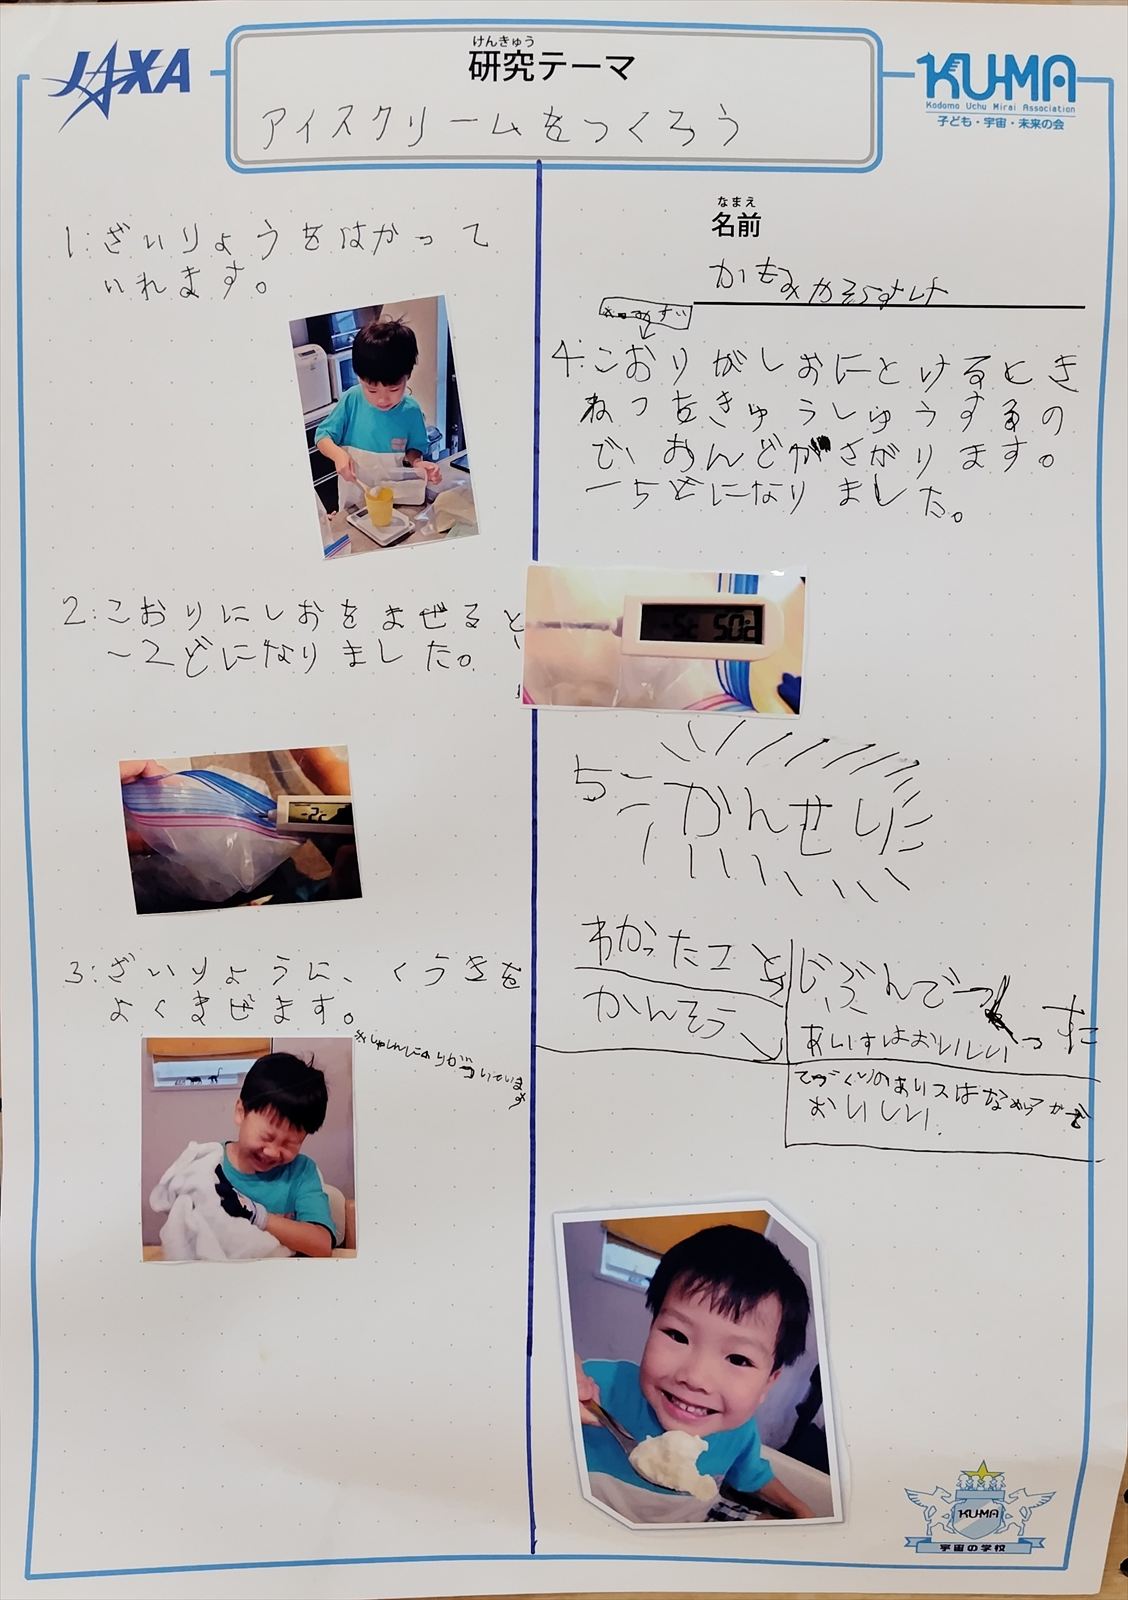 JAXA
けんきゅう
研究テーマ
アイスクリームをつくろう
KU-MA
Kodomo Uchu Mirai Association
子ども・宇宙・未来の会
1:ざいりょうをはかって
いれます。
2:こおりにしおをまぜると、
-2どになりました。
3:ざいりょうに、くうきを
よくまぜます。
なまえ
名前
4:こおりがしおにとけるとき
ねつをきゅうしゅうするの
で、おんどがさがります。
-5どになりました。
5:かんせい
わかったこと
かんそう
じぶんでつくった
あいすはおいしい
てづくりのあいスはなめらかで
おいしい.
KU-MA
宇宙の学校